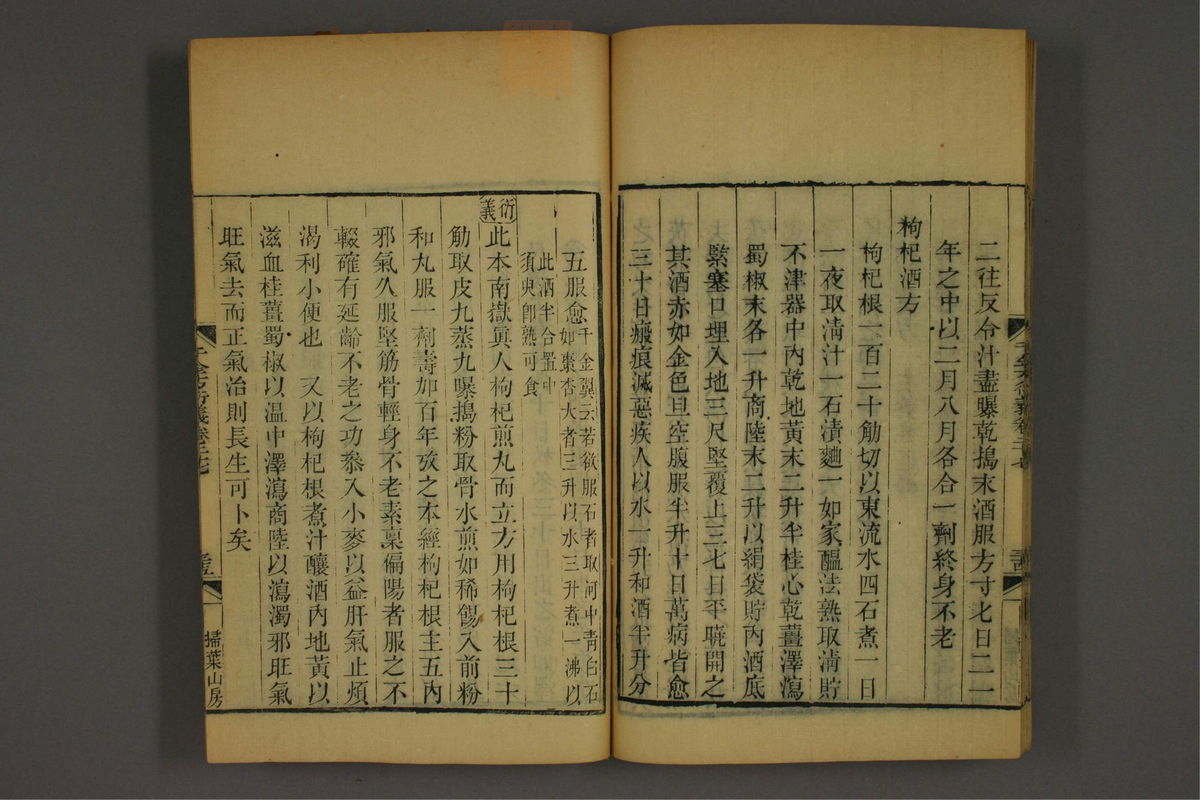 二往反令汁盡曝乾搗末酒服方寸匕日二一
年之中以二月八月各合一劑終身不老
枸杞酒方
枸杞根一百二十觔切以東流水四石煮一日
一夜取淸汁一石漬麯一如家醞法熟取淸貯
不津器中內乾地黃末二升半桂心乾薑澤瀉
蜀椒末各一升商陸末二升以絹袋貯內酒底
緊塞口埋入地三尺堅覆上三七日平曉開之
其酒赤如金色旦空腹服半升十日萬病皆愈
之三十日瘢痕滅惡疾人以水一升和酒半升分
五服愈千金翼云若欲服石者取河中靑白石
如棗杏大者三升以水三升煮一沸以
此酒半合置中
須臾卽熟可食
衍義
此本南嶽眞人枸杞煎丸而立方用枸杞根三十
觔取皮九蒸九曝搗粉取骨水煎如稀餳入前粉
和丸服一劑壽如百年攷之本經枸杞根主五內
邪氣久服堅筋骨輕身不老素稟偏陽者服之不
輟確有延齡不老之功叅入小麥以益肝氣止煩
渴利小便也 又以枸杞根煮汁釀酒內地黃以
滋血桂薑蜀椒以温中澤瀉商陸以瀉濁邪旺氣
旺氣去而正氣治則長生可卜矣
千金方衍義卷二十七
掃葉山房